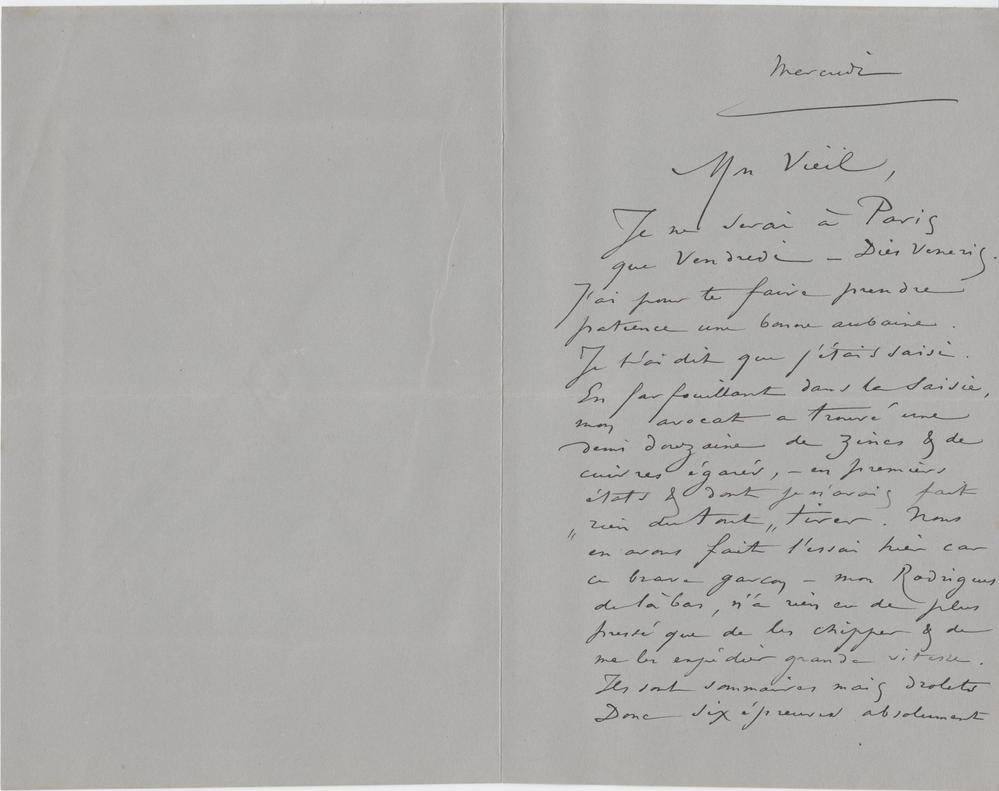 Mercredi
Mon Vieil,
Je ne serai à Paris
que Vendredi – Diès Veneris.
J'ai pour te faire prendre
patience une bonne aubaine.
Je t'ai dit que j'étais saisi.
En farfouillant dans la Saisie,
mon avocat a trouvé une
demi douzaine de Zincs & de
cuivres égarés, – en premiers
états & dont je n'avais fait
„rien du tout„ tirer. Nous
en avons fait l'essai hier car
ce brave garçon – mon Rodrigues
de là bas, n'a rien eu de plus
pressé que de les chipper & de
me les expédier grande vitesse.
Ils sont sommaires mais drolets
Donc six épreuves absolument